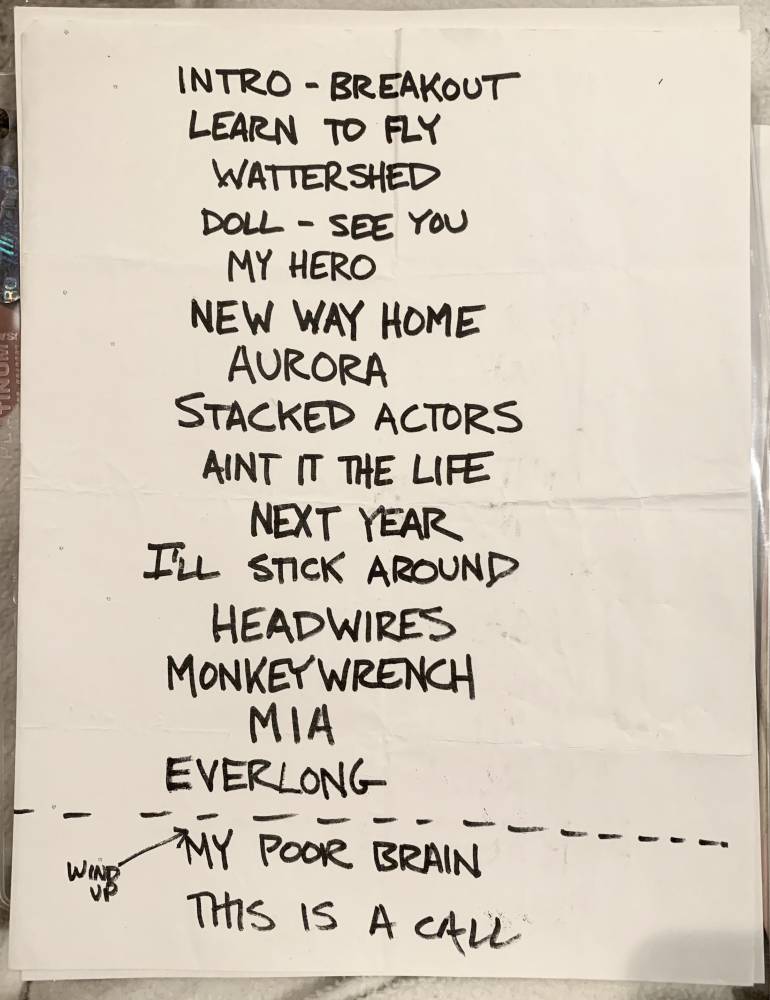 INTRO - BREAKOUT
LEARN TO FLY
WATTERSHED
DOLL - SEE YOU
MY HERO
NEW WAY HOME
AURORA
STACKED ACTORS
AINT IT THE LIFE
NEXT YEAR
I'LL STICK AROUND
HEADWIRES
MONKEYWRENCH
MIA
EVERLONG
MY POOR BRAIN
WIND
UP
THIS IS A CALL